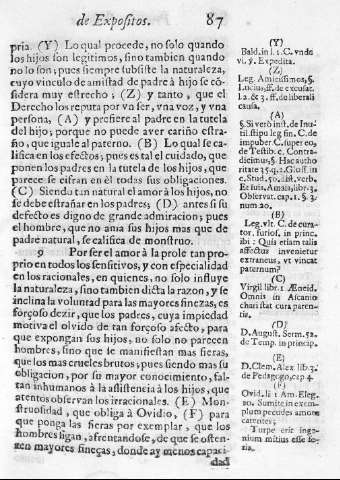 de Expositos. 87
pria. (Y) Lo qual procede, no solo quando
los hijos son legitimos, sino tambien quando
no lo son; pues siempre subsiste la naturaleza,
cuyo vinculo de amistad de padre à hijo se cõ-
sidera muy estrecho; (Z) y tanto, que el
Derecho los reputa por vn ser, vna voz, y vna
persona, (A) y prefiere al padre en la tutela
del hijo; porque no puede aver cariño estra-
ño, que iguale al paterno. (B) Lo qual se ca-
lifica en los efectos; pues es tal el cuidado, que
ponen los padres en la tutela de los hijos, que
parece se cifran en el todas sus obligaciones.
(C) Siendo tan natural el amor à los hijos, no
se debe estrañar en los padres; (D) antes si su
defecto es digno de grande admiracion; pues
el hombre, que no ama sus hijos mas que de
padre natural, se califica de monstruo.
9 Por ser el amor à la prole tan pro-
prio en todos los sensitivos, y con especialidad
en los racionales, en quienes, no solo influye
la naturaleza, sino tambien dicta la razon, y se
inclina la voluntad para las mayores finezas, es
forçoso dezir, que los padres, cuya impiedad
motiva el olvido de tan forçoso afecto, para
que expongan sus hijos, no solo no parecen
hombres, sino que se manifiestan mas fieras,
que los mas crueles brutos; pues siendo mas su
obligacion, por su mayor conocimiento, fal-
tan inhumanos à la assistencia à los hijos, que
atentos observan los irracionales. (E) Mon-
struosidad, que obliga à Ovidio, (F) para
que ponga las fieras por exemplar, que los
hombres sigan, afrentandose, de que se osten-
ten mayores fineças, donde ay menos capaci-
dad
(Y)
Bald. in l. 1. C. vnde
vi. ỳ. Expedita.
(Z)
Leg. Amicissimos, §.
Lucius, ff. de excusat.
l. 2. & 3. ff. de liberali
causa.
(A)
§. Si verò inst. de Inu-
til. stipu leg fin. C. de
impuber. C. super eo,
de Testib. c. Contra-
dicimus, §. Hac autho
ritate 35. q. 2. Gloss. in
c. Stud. 50. dist. verb.
Et sui, Amaia, lib. 3.
Observat. cap. 1. §. 3.
num. 20.
(B)
Leg. vlt. C. de cura-
tor. furios. in princ.
ibi: Quis etiam talis
affectus invenietur
extraneus, vt vincat
paternum?
(C)
Virgil. lib. 1. Æneid.
Omnis in Ascanio
chari stat cura paren-
tis.
(D)
D. August. Serm. 52.
de Temp. in princip.
(E)
D. Clem. Alex. lib. 3.
de Pedagog. cap. 4
(F)
Ovid. li 1 Am. Eleg.
10. Sumite in exem-
plum pecudes amore
carentes;
Turpe erit inge-
nium mitius esse fe-
ris.